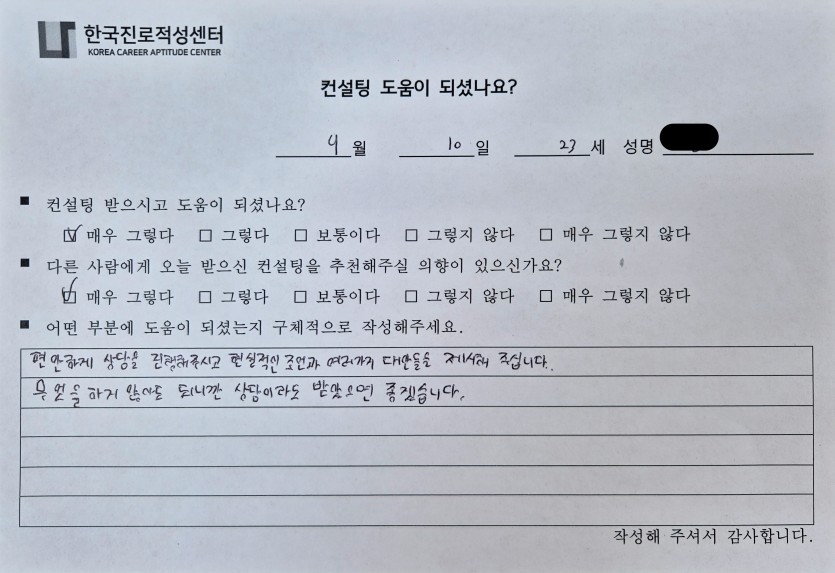 한국진로적성센터
KOREA CAREER APTITUDE CENTER
컨설팅 도움이 되셨나요?
4월 10일 23세 성명
■ 컨설팅 받으시고 도움이 되셨나요?
☑ 매우 그렇다 □ 그렇다 □ 보통이다 □ 그렇지 않다 □ 매우 그렇지 않다
■ 다른 사람에게 오늘 받으신 컨설팅을 추천해주실 의향이 있으신가요?
☑ 매우 그렇다 □ 그렇다 □ 보통이다 □ 그렇지 않다 □ 매우 그렇지 않다
■ 어떤 부분에 도움이 되셨는지 구체적으로 작성해주세요.
편안하게 상담을 진행해주시고 현실적인 조언과 여러가지 대안들을 제시해 주십니다.
무엇을 하지 않아도 되니깐 상담이라도 받았으면 좋겠습니다.
작성해 주셔서 감사합니다.